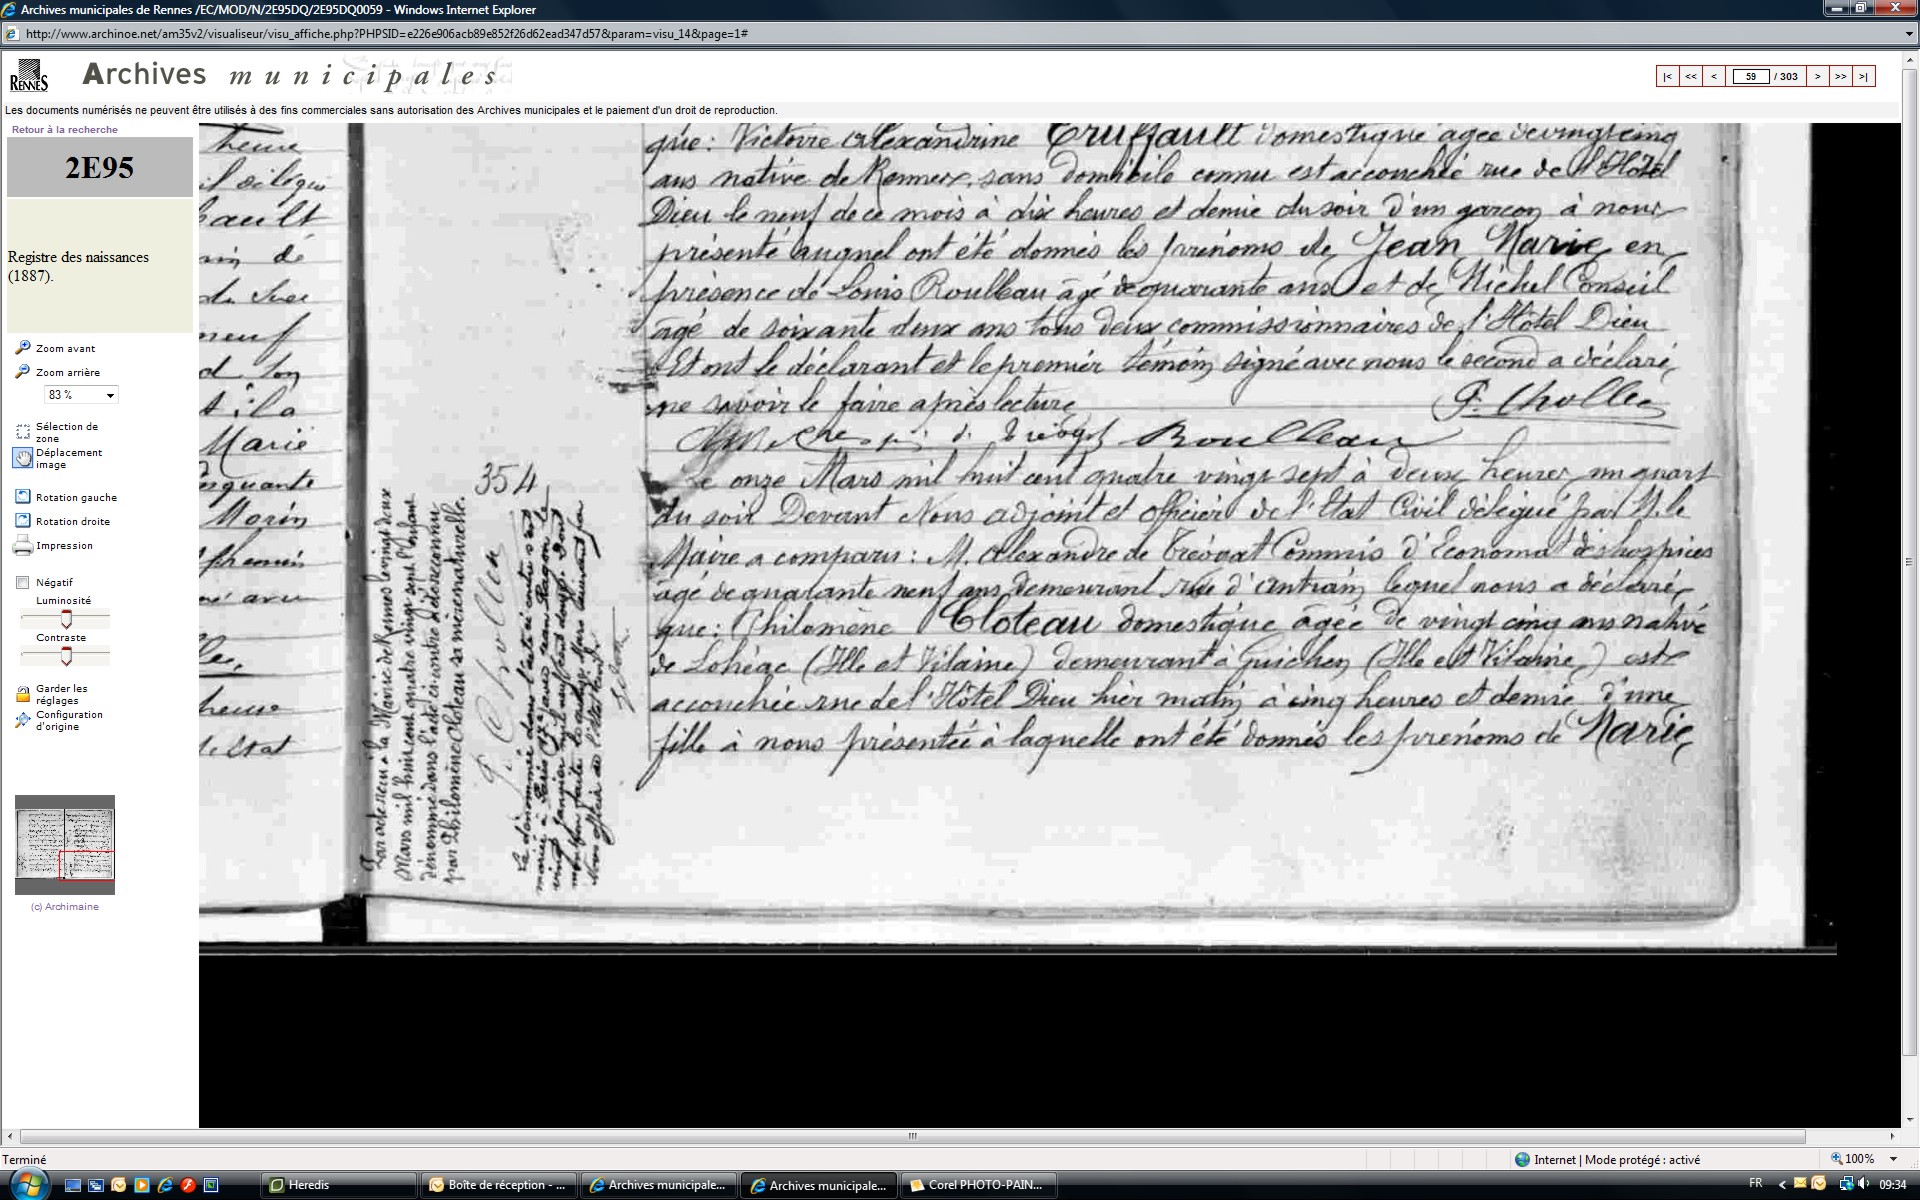 Archives municipales de Rennes /EC/MOD/N/2E95DQ/2E95DQ0059 - Windows Internet Explorer
http://www.archinoe.net/am35v2/visualiseur/visu_affiche.php?PHPSID=e226e906acb89e852f26d62ead347d57&param=visu_14&page=1#
RENNES
Archives municipales
|< << < 59 / 303 > >> >|
Les documents numérisés ne peuvent être utilisés à des fins commerciales sans autorisation des Archives municipales et le paiement d'un droit de reproduction.
Retour à la recherche
2E95
Registre des naissances
(1887).
Zoom avant
Zoom arrière
83 %
Sélection de
zone
Déplacement
image
Rotation gauche
Rotation droite
Impression
Négatif
Luminosité
Contraste
Garder les
réglages
Configuration
d'origine
(c) Archimaine
heure
hault
neuf
Marie
Morin
heure
que: Victoire Alexandrine Truffault domestique agée de vingt cinq
ans native de Rennes, sans domicile connu est accouchée rue de l'Hôtel
Dieu le neuf de ce mois à dix heures et demie du soir d'un garçon à nous
présenté auquel ont été donnés les prénoms de Jean Marie en
présence de Louis Roulleau âgé de quarante ans et de Michel Conseil
âgé de soixante deux ans tous deux commissionnaires de l'Hôtel Dieu
Et ont le déclarant et le premier témoin signé avec nous le second a déclaré
ne savoir le faire après lecture
P. Chollet
de Tréogat Roulleau
354
Le onze Mars mil huit cent quatre vingt sept à deux heures un quart
du soir Devant Nous adjoint et officier de l'Etat Civil délégué par M. le
Maire a comparu: M. Alexandre de Tréogat Commis d'Economat des hospices
âgé de quarante neuf ans demeurant rue d'Antrain lequel nous a déclaré
que: Philomène Cloteau domestique âgée de vingt cinq ans native
de Lohéac (Ille et Vilaine) demeurant à Guichen (Ille et Vilaine) est
accouchée rue de l'Hôtel Dieu hier matin à cinq heures et demie d'une
fille à nous présentée à laquelle ont été donnés les prénoms de Marie
Par acte reçu à la Mairie de Rennes le vingt deux
Mars mil huit cent quatre vingt sept l'enfant
dénommé dans l'acte ci-contre a été reconnu
par Philomène Cloteau sa mère naturelle.
P. Chollet
La dénommée dans l'acte ci contre s'est
mariée à Paris avec Jean Ragon le
vingt janvier mil neuf cent douze. Dont
mention faite le quatorze Mars suivant par
Nous officier de l'état civil.
Terminé
Internet | Mode protégé : activé
100%
Heredis
Boîte de réception - ...
Archives municipale...
Archives municipale...
Corel PHOTO-PAIN...
FR
09:34